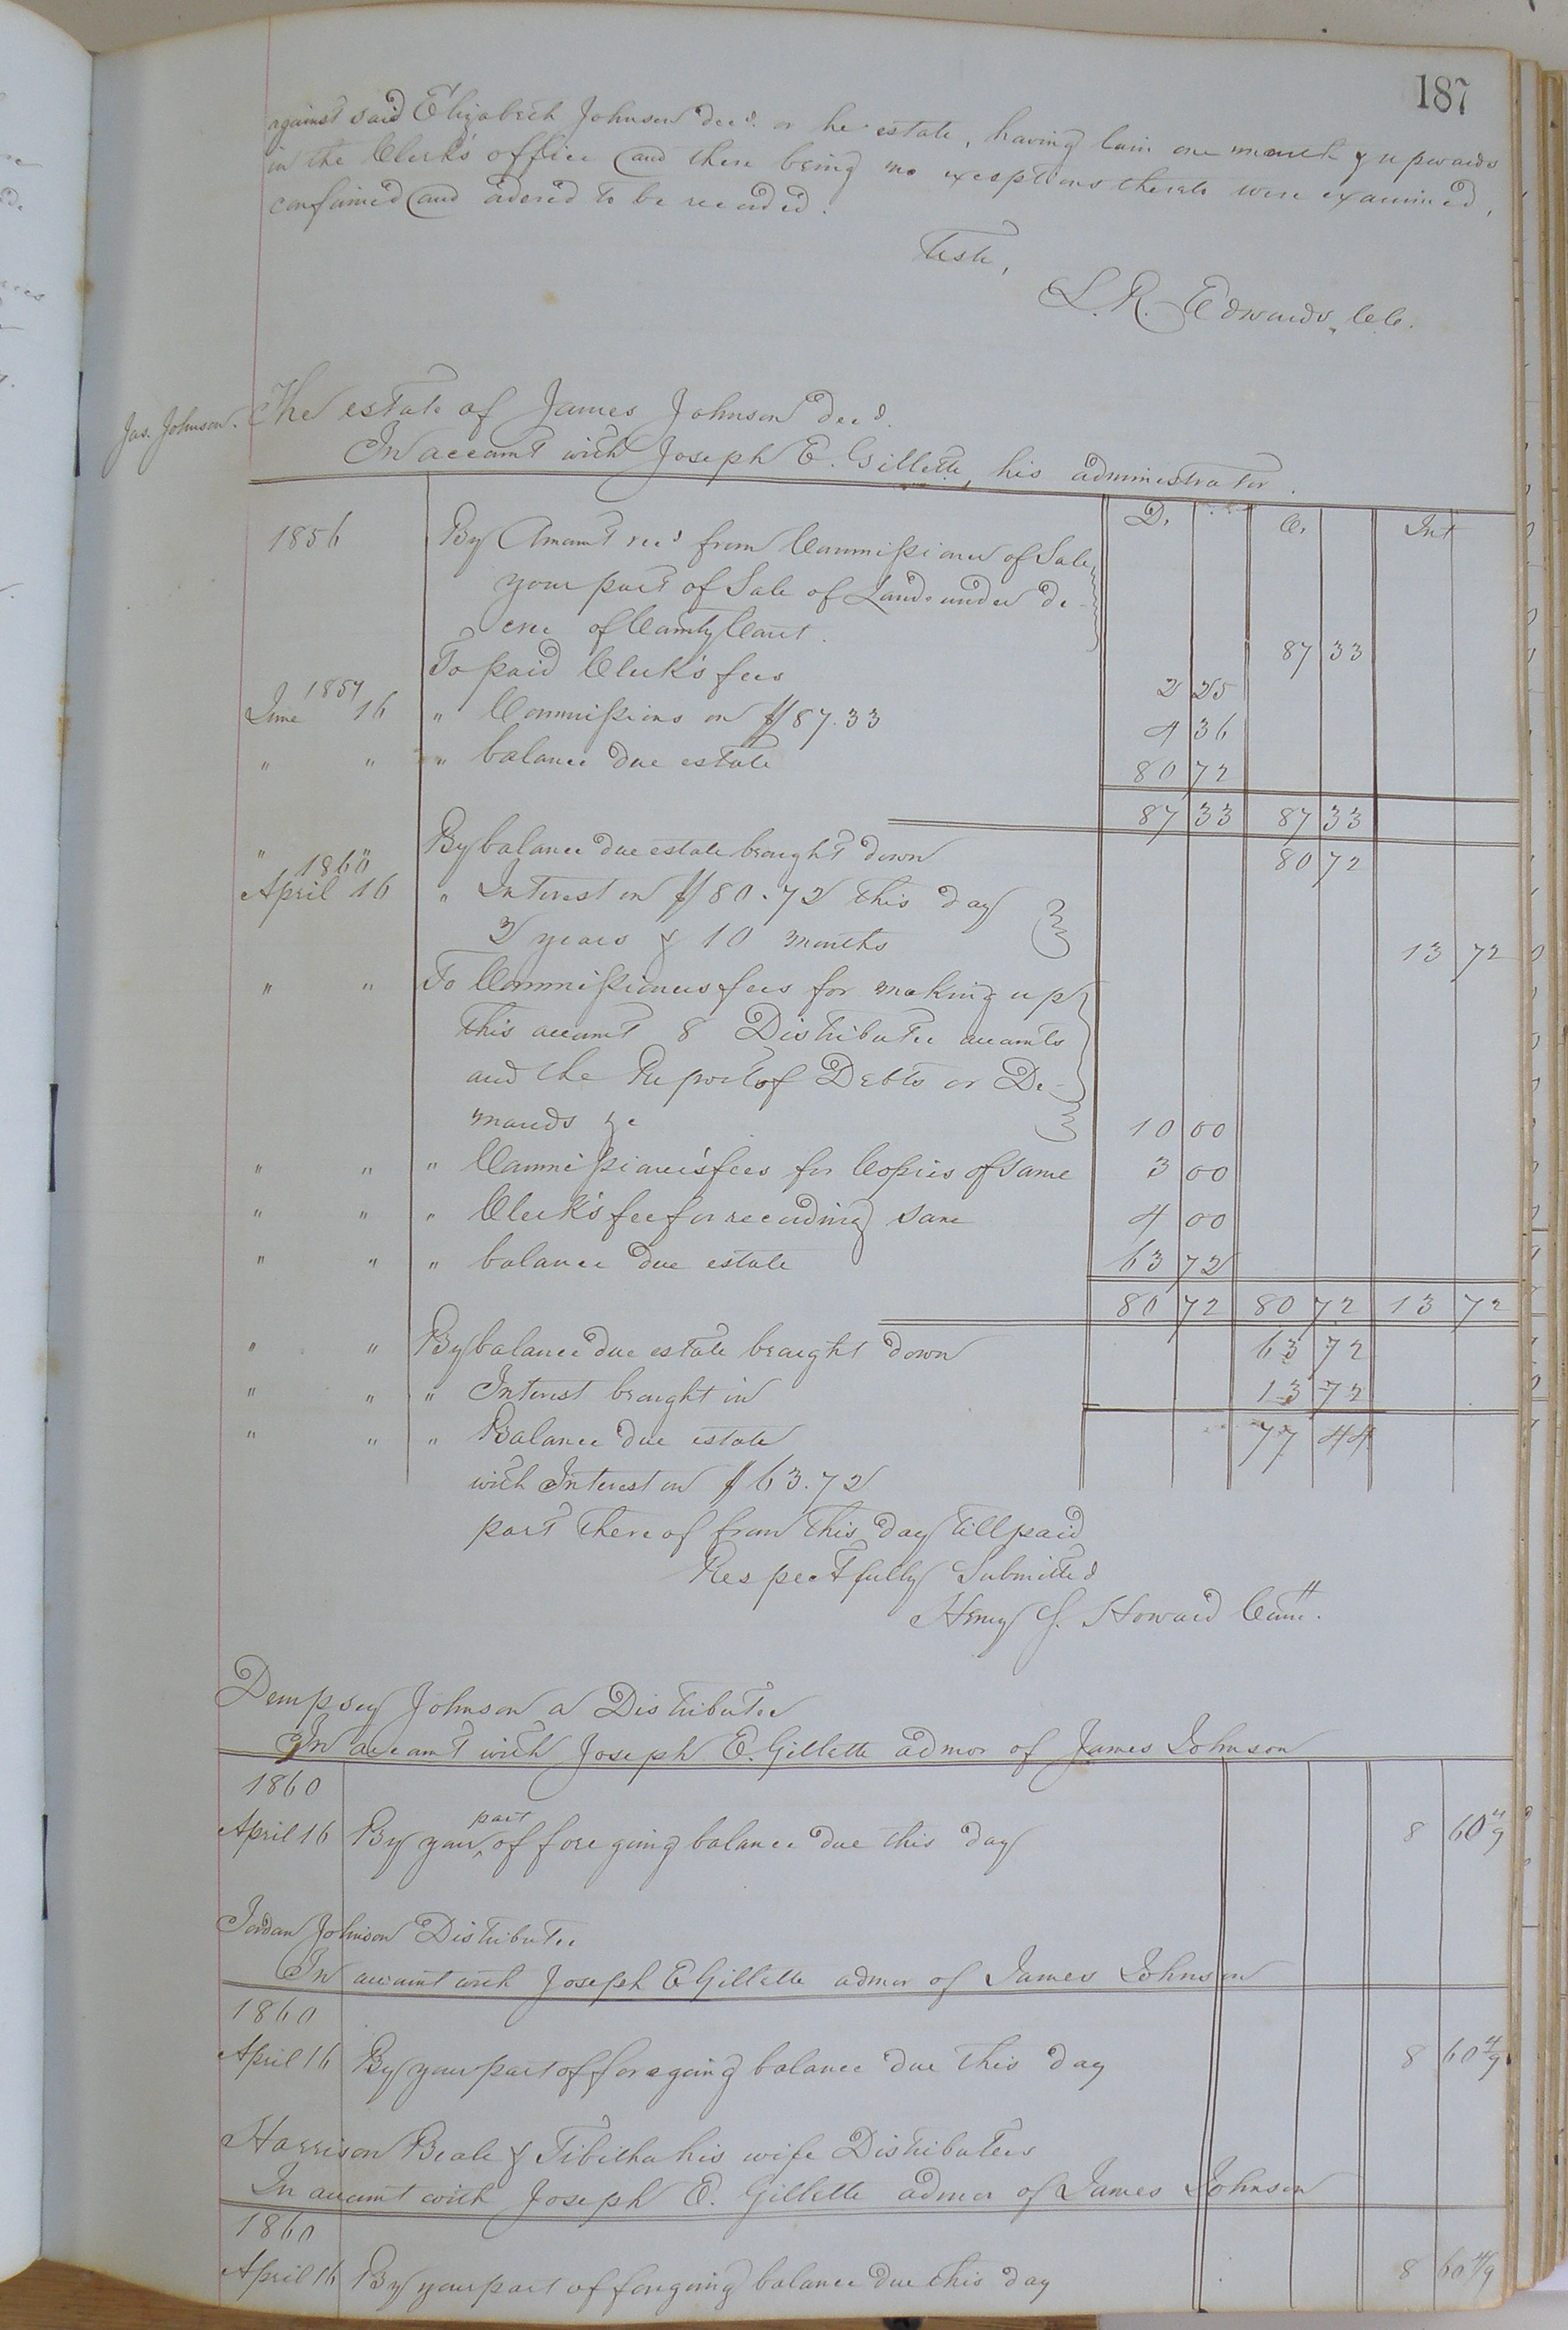 187
against said Elizabeth Johnson decd. or her estate, having lain one month & upwards
in the Clerk's office and there being no exceptions thereto were examined,
confirmed and ordered to be recorded.
Teste,
L. R. Edwards, C.C.
Jas. Johnson.
The estate of James Johnson decd.
In account with Joseph E. Gillette, his administrator.
Dr. Cr. Int
1856 By Amount recd from Commissioner of Sale
your part of Sale of Land under de-
cree of County Court. 87 33
To paid Clerk's fees 2 25
1857
June 16 " Commissions on $87.33 4 36
" " " balance due estate 80 72
87 33 87 33
" " By balance due estate brought down 80 72
1860
April 16 " Interest on $80.72 this day
2 years & 10 months 13 72
" " To Commissioners fees for making up
this account 8 Distributee accounts
and the Report of Debts or De-
mands &c 10 00
" " " Commissioner's fees for Copies of same 3 00
" " " Clerk's fee for recording same 4 00
" " " balance due estate 63 72
80 72 80 72 13 72
" " By balance due estate brought down 63 72
" " " Interest brought in 13 72
" " " Balance due estate 77 44
with Interest on $63.72
part thereof from this day till paid
Respectfully Submitted
Henry J. Howard Comr.
Dempsey Johnson a Distributee
In account with Joseph E. Gillette admor of James Johnson
1860
April 16 By your part of foregoing balance due this day 8 60 4/9
Jordan Johnson Distributee
In account with Joseph E Gillette admor of James Johnson
1860
April 16 By your part of foregoing balance due this day 8 60 4/9
Harrison Beale & Tibitha his wife Distributees
In account with Joseph E. Gillette admor of James Johnson
1860
April 16 By your part of foregoing balance due this day 8 60 4/9